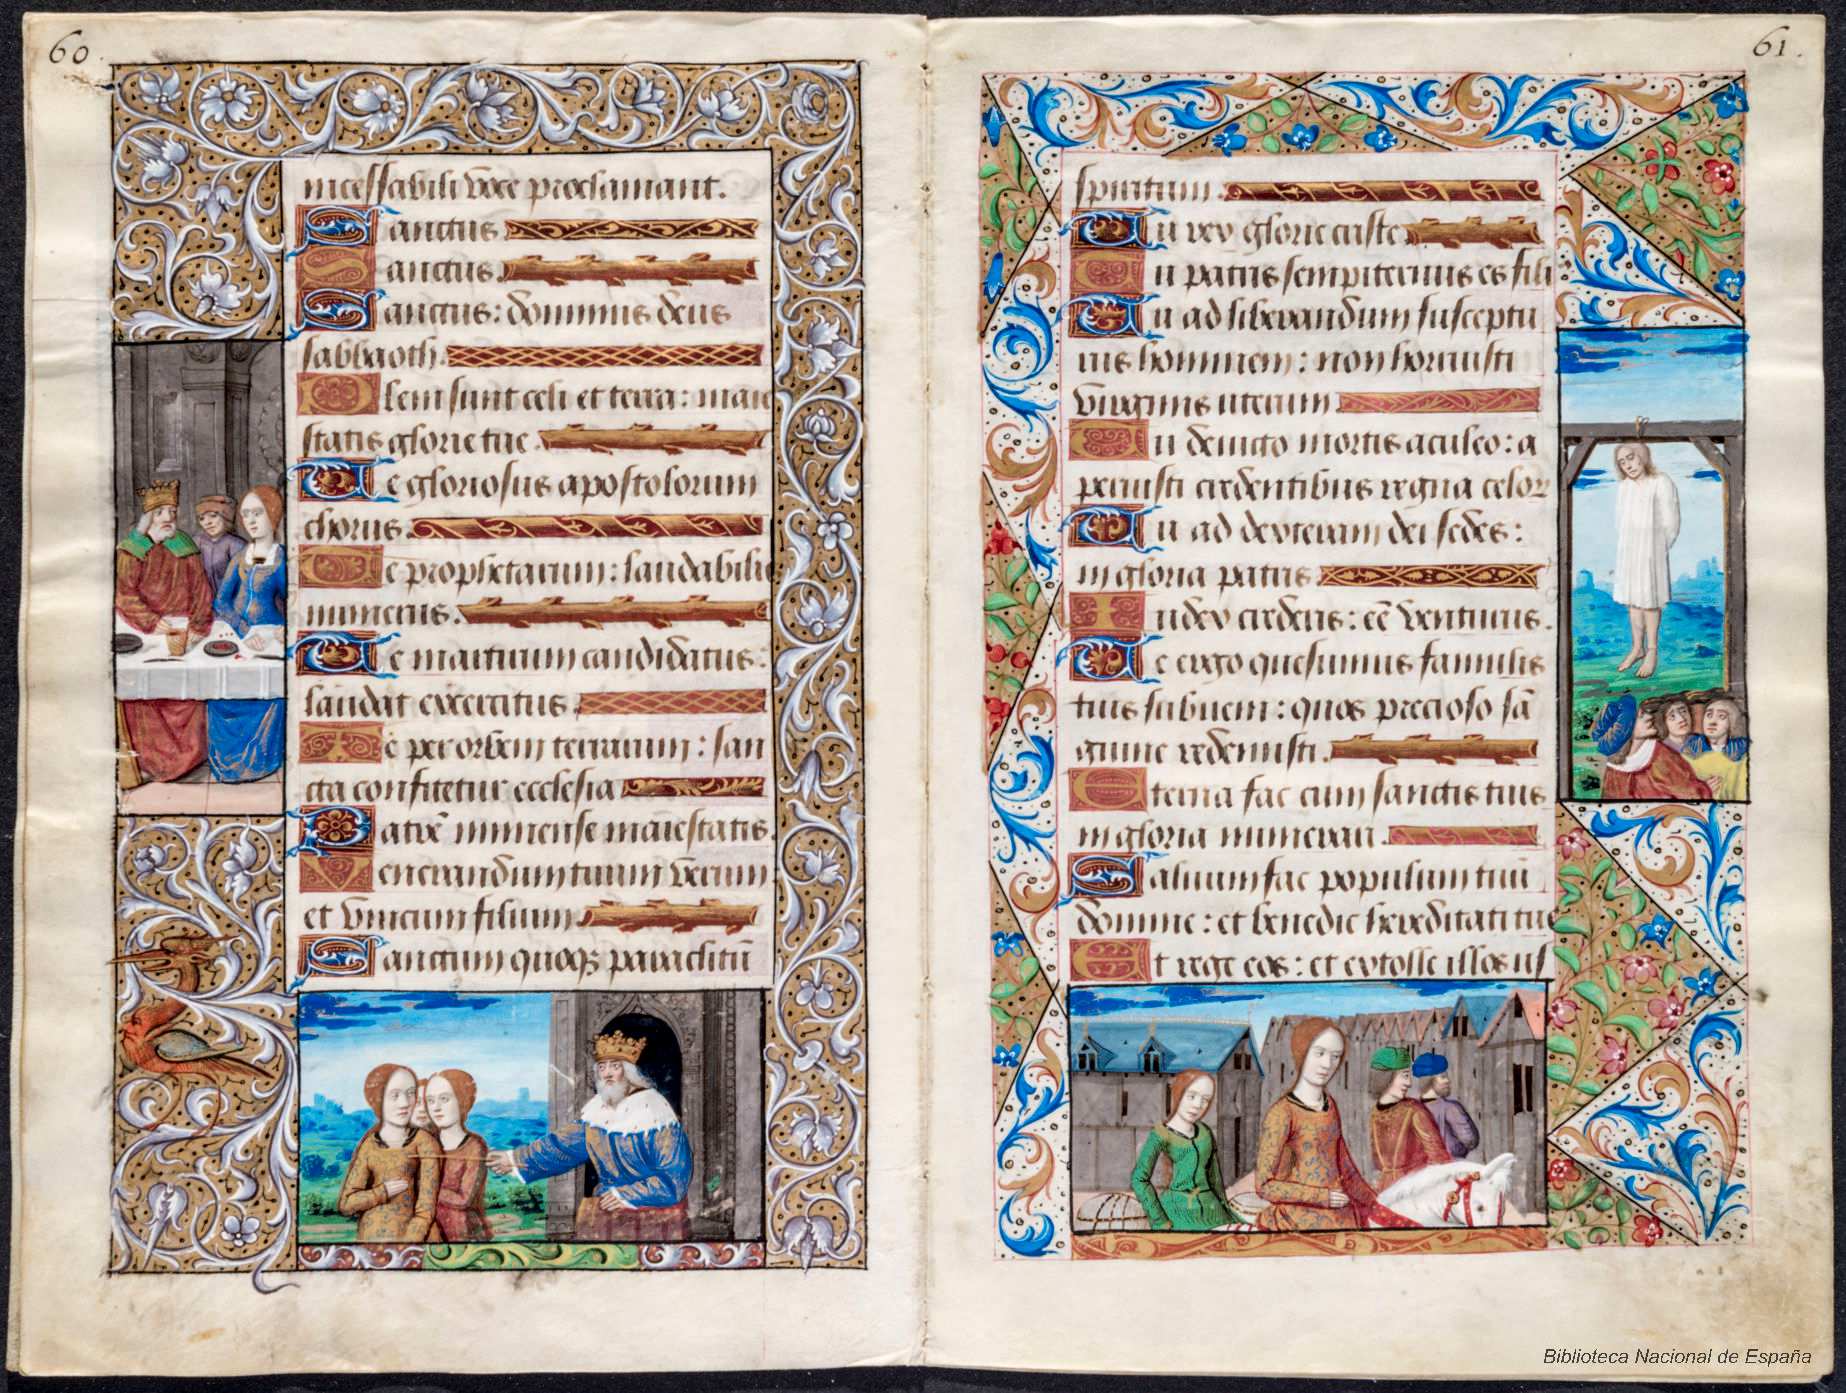 60.
incessabili voce proclamant.
Sanctus
Sanctus.
Sanctus: dominus deus
sabbaoth.
Pleni sunt celi et terra: maie
statis glorie tue.
Te gloriosus apostolorum
chorus.
Te prophetarum: laudabilis
numerus.
Te martirum candidatus:
laudat exercitus.
Te per orbem terrarum: san
cta confitetur ecclesia
Patrē immense maiestatis.
Venerandum tuum verum
et vnicum filium
Sanctum quoqꝫ paraclitū
61.
spiritum.
Tu rex glorie criste
Tu patris sempiternus es fili
Tu ad liberandum susceptu
rus hominem: non horruisti
virginis uterum
Tu devicto mortis aculeo: a
peruisti credentibus regna celor
Tu ad dexteram dei sedes:
in gloria patris
Iudex crederis: eē venturus.
Te ergo quesumus famulis
tuis subueni: quos precioso sā
guine redemisti.
Eterna fac cum sanctis tuis
in gloria numerari.
Saluum fac populum tuū
domine: et benedic hereditati tue
Et rege eos: et extolle illos us
Biblioteca Nacional de España